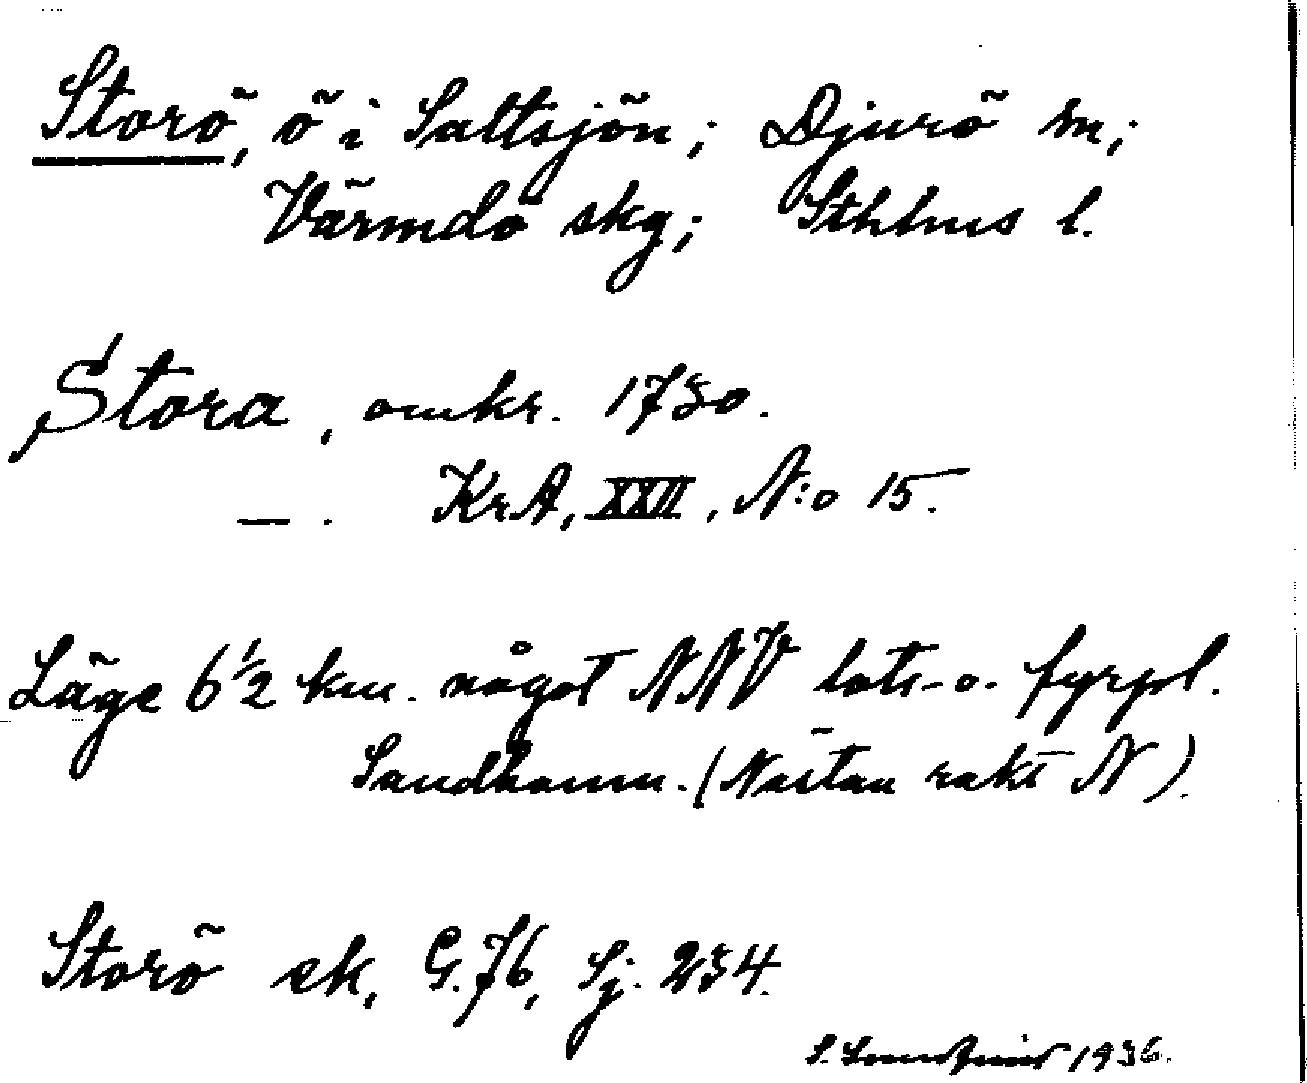 Storö, ö i Saltsjön; Djurö sn;
Värmdö skg; Sthlms l.
Stora, omkr. 1730.
— . KrA, XXII, N:o 15.
Läge 6½ km. något NNV lots- o. fyrpl.
Sandhamn. (Nästan rakt N).
Storö ek, G. 76, Sj. 234.
S. 1936.